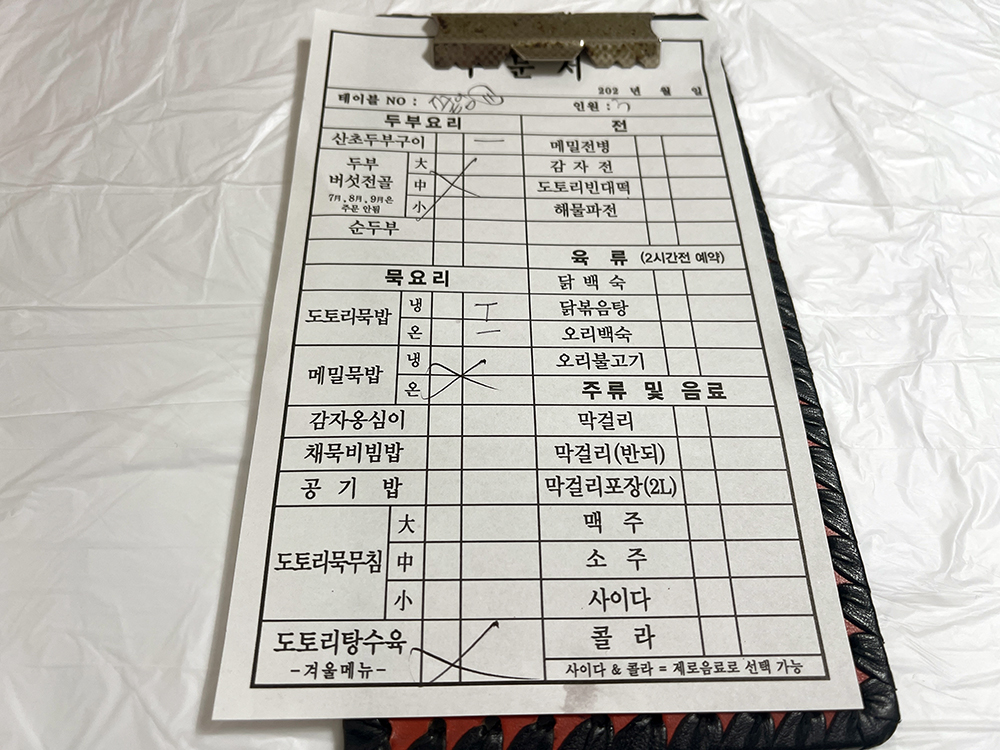 주문서
202 년 월 일
테이블 NO :
인원 :
두부요리
전
산초두부구이 一
메밀전병
두부
버섯전골
7月, 8月, 9月은
주문 안됨
大
中
小
감 자 전
도토리빈대떡
해물파전
순두부
육 류 (2시간전 예약)
묵요리
닭 백 숙
도토리묵밥
냉 T
온 一
닭볶음탕
오리백숙
메밀묵밥
냉
온
오리불고기
주류 및 음료
감자옹심이
막걸리
채묵비빔밥
막걸리(반되)
공 기 밥
막걸리포장(2L)
도토리묵무침
大
中
小
맥 주
소 주
사이다
도토리탕수육
-겨울메뉴-
콜 라
사이다 & 콜라 = 제로음료로 선택 가능